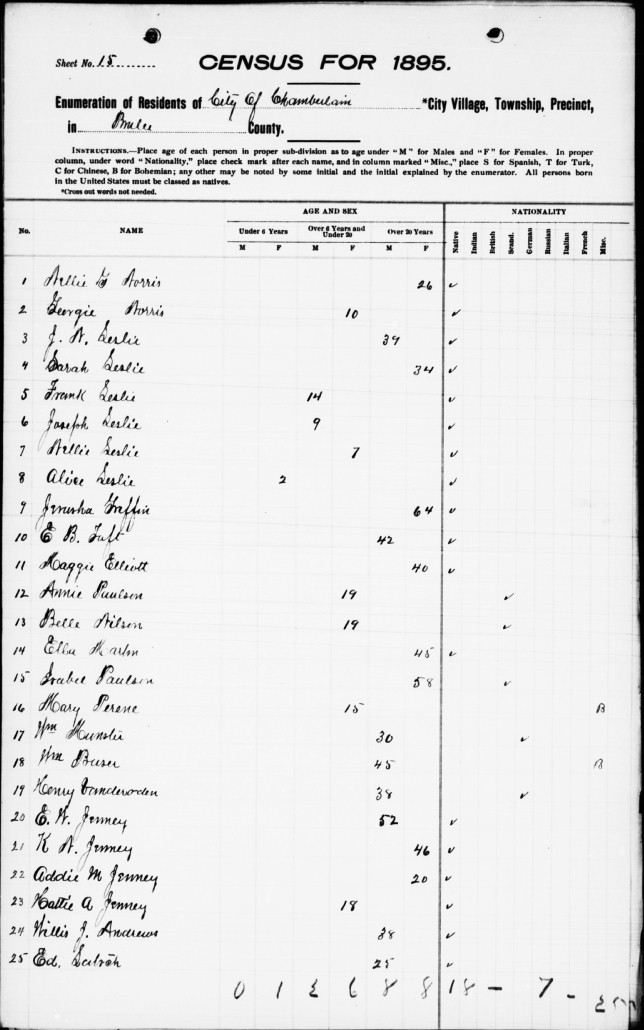 Sheet No. 15
CENSUS FOR 1895.
Enumeration of Residents of City Of Chamberlain *City Village, Township, Precinct,
in Brule County.
INSTRUCTIONS.—Place age of each person in proper sub-division as to age under "M" for Males and "F" for Females. In proper
column, under word "Nationality," place check mark after each name, and in column marked "Misc.," place S for Spanish, T for Turk,
C for Chinese, B for Bohemian; any other may be noted by some initial and the initial explained by the enumerator. All persons born
in the United States must be classed as natives.
*Cross out words not needed.
AGE AND SEX NATIONALITY
No. NAME Under 6 Years Over 6 Years and Under 20 Over 20 Years Native Indian British Scand. German Russian Italian French Misc.
M F M F M F
1 Nellie G Norris 26 ✓
2 Georgie Norris 10 ✓
3 J. N. Leslie 39 ✓
4 Sarah Leslie 34 ✓
5 Frank Leslie 14 ✓
6 Joseph Leslie 9 ✓
7 Nellie Leslie 7 ✓
8 Alice Leslie 2 ✓
9 Jerusha 64 ✓
10 E B. Taft 42 ✓
11 Maggie Elliott 40 ✓
12 Annie Paulson 19 ✓
13 Belle Nilson 19 ✓
14 Ella 45 ✓
15 Isabel Paulson 58 ✓
16 Mary Perene 15 B
17 Wm 30 ✓
18 Wm 45 B
19 Henry Vanderoden 38 ✓
20 E. W. Jenney 52 ✓
21 K N. Jenney 46 ✓
22 Addie M Jenney 20 ✓
23 Hattie A Jenney 18 ✓
24 Willis J. Andrews 38 ✓
25 Ed. 25 ✓
0 1 2 6 8 8 18 – 7 –